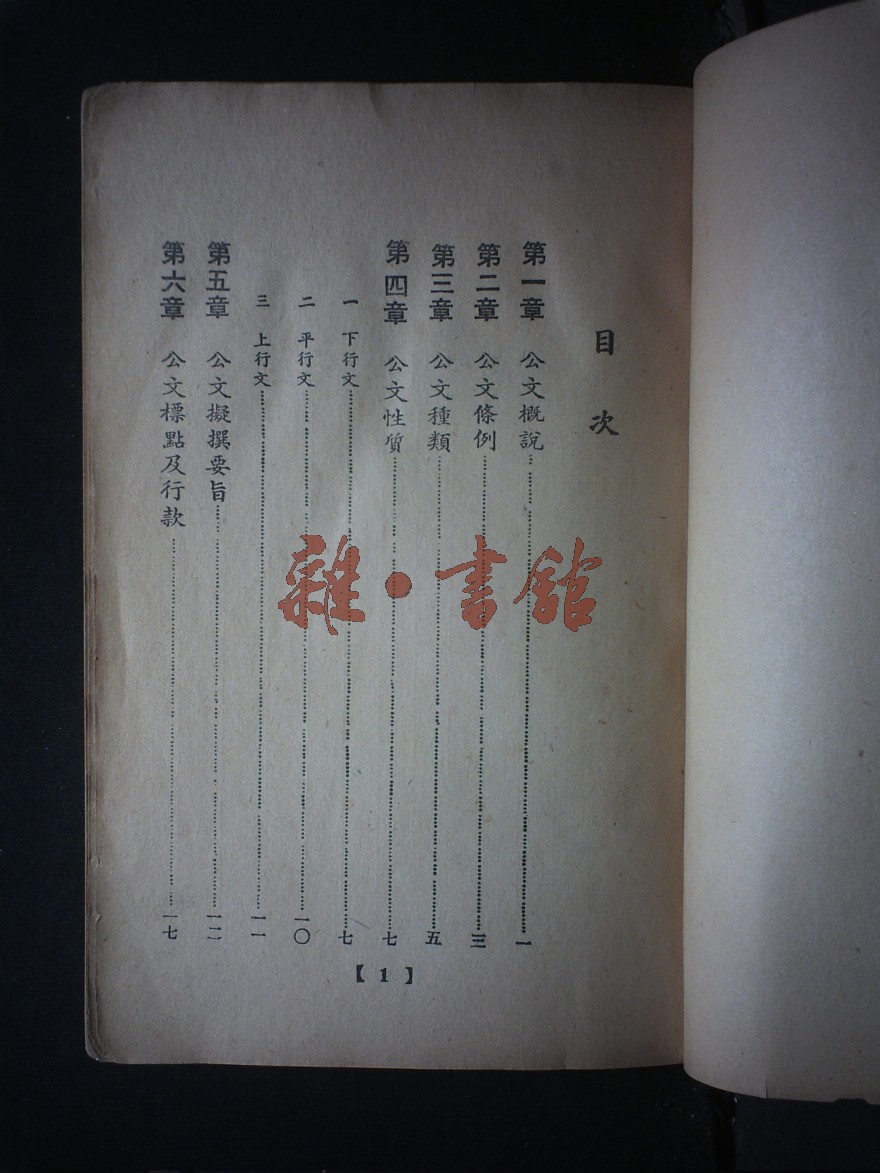 目次
第一章 公文概說 一
第二章 公文條例 三
第三章 公文種類 五
第四章 公文性質 七
一 下行文 七
二 平行文 一〇
三 上行文 一一
第五章 公文擬撰要旨 一二
第六章 公文標點及行款 一七
【1】
雜·書館